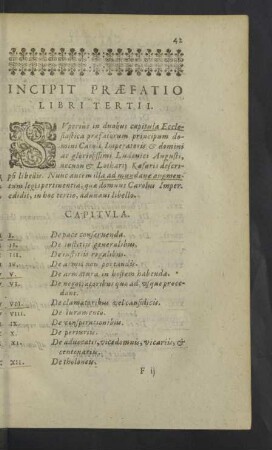 42
INCIPIT PRÆFATIO
LIBRI TERTII.
SUperius in duabus capitula Eccle-
siastica præfatorum principum do-
mini Caroli Imperatoris & domini
ac gloriosissimi Ludouici Augusti,
necnon & Lotharij Cæsaris descrip-
si libellis. Nunc autem illa ad mundanæ augmen-
tum legis pertinentia, quæ domnus Carolus Imper.
edidit, in hoc tertio, adunaui libello.
CAPITULA.
I. De pace conseruanda.
II. De iustitijs generalibus.
III. De iustitijs regalibus.
IV. De armis non portandis.
V. De armatura in hostem habenda.
VI. De negotiatoribus quo ad usque proce-
dant.
VII. De clamatoribus vel causidicis.
VIII. De iuramento.
IX. De conspirationibus.
X. De periurijs.
XI. De aduocatis, vicedominis, vicarijs, &
centenarijs.
XII. De tholoneis.
F ij